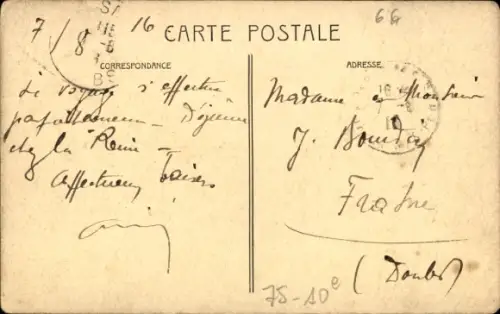 7/8 16
66
CARTE POSTALE
CORRESPONDANCE
ADRESSE
Le voyage s'effectue
parfaitement - Déjeuner
chez la
Affectueux baisers
Madame et Monsieur
J. Bourdin
Frasne
(Doubs)
75-10e